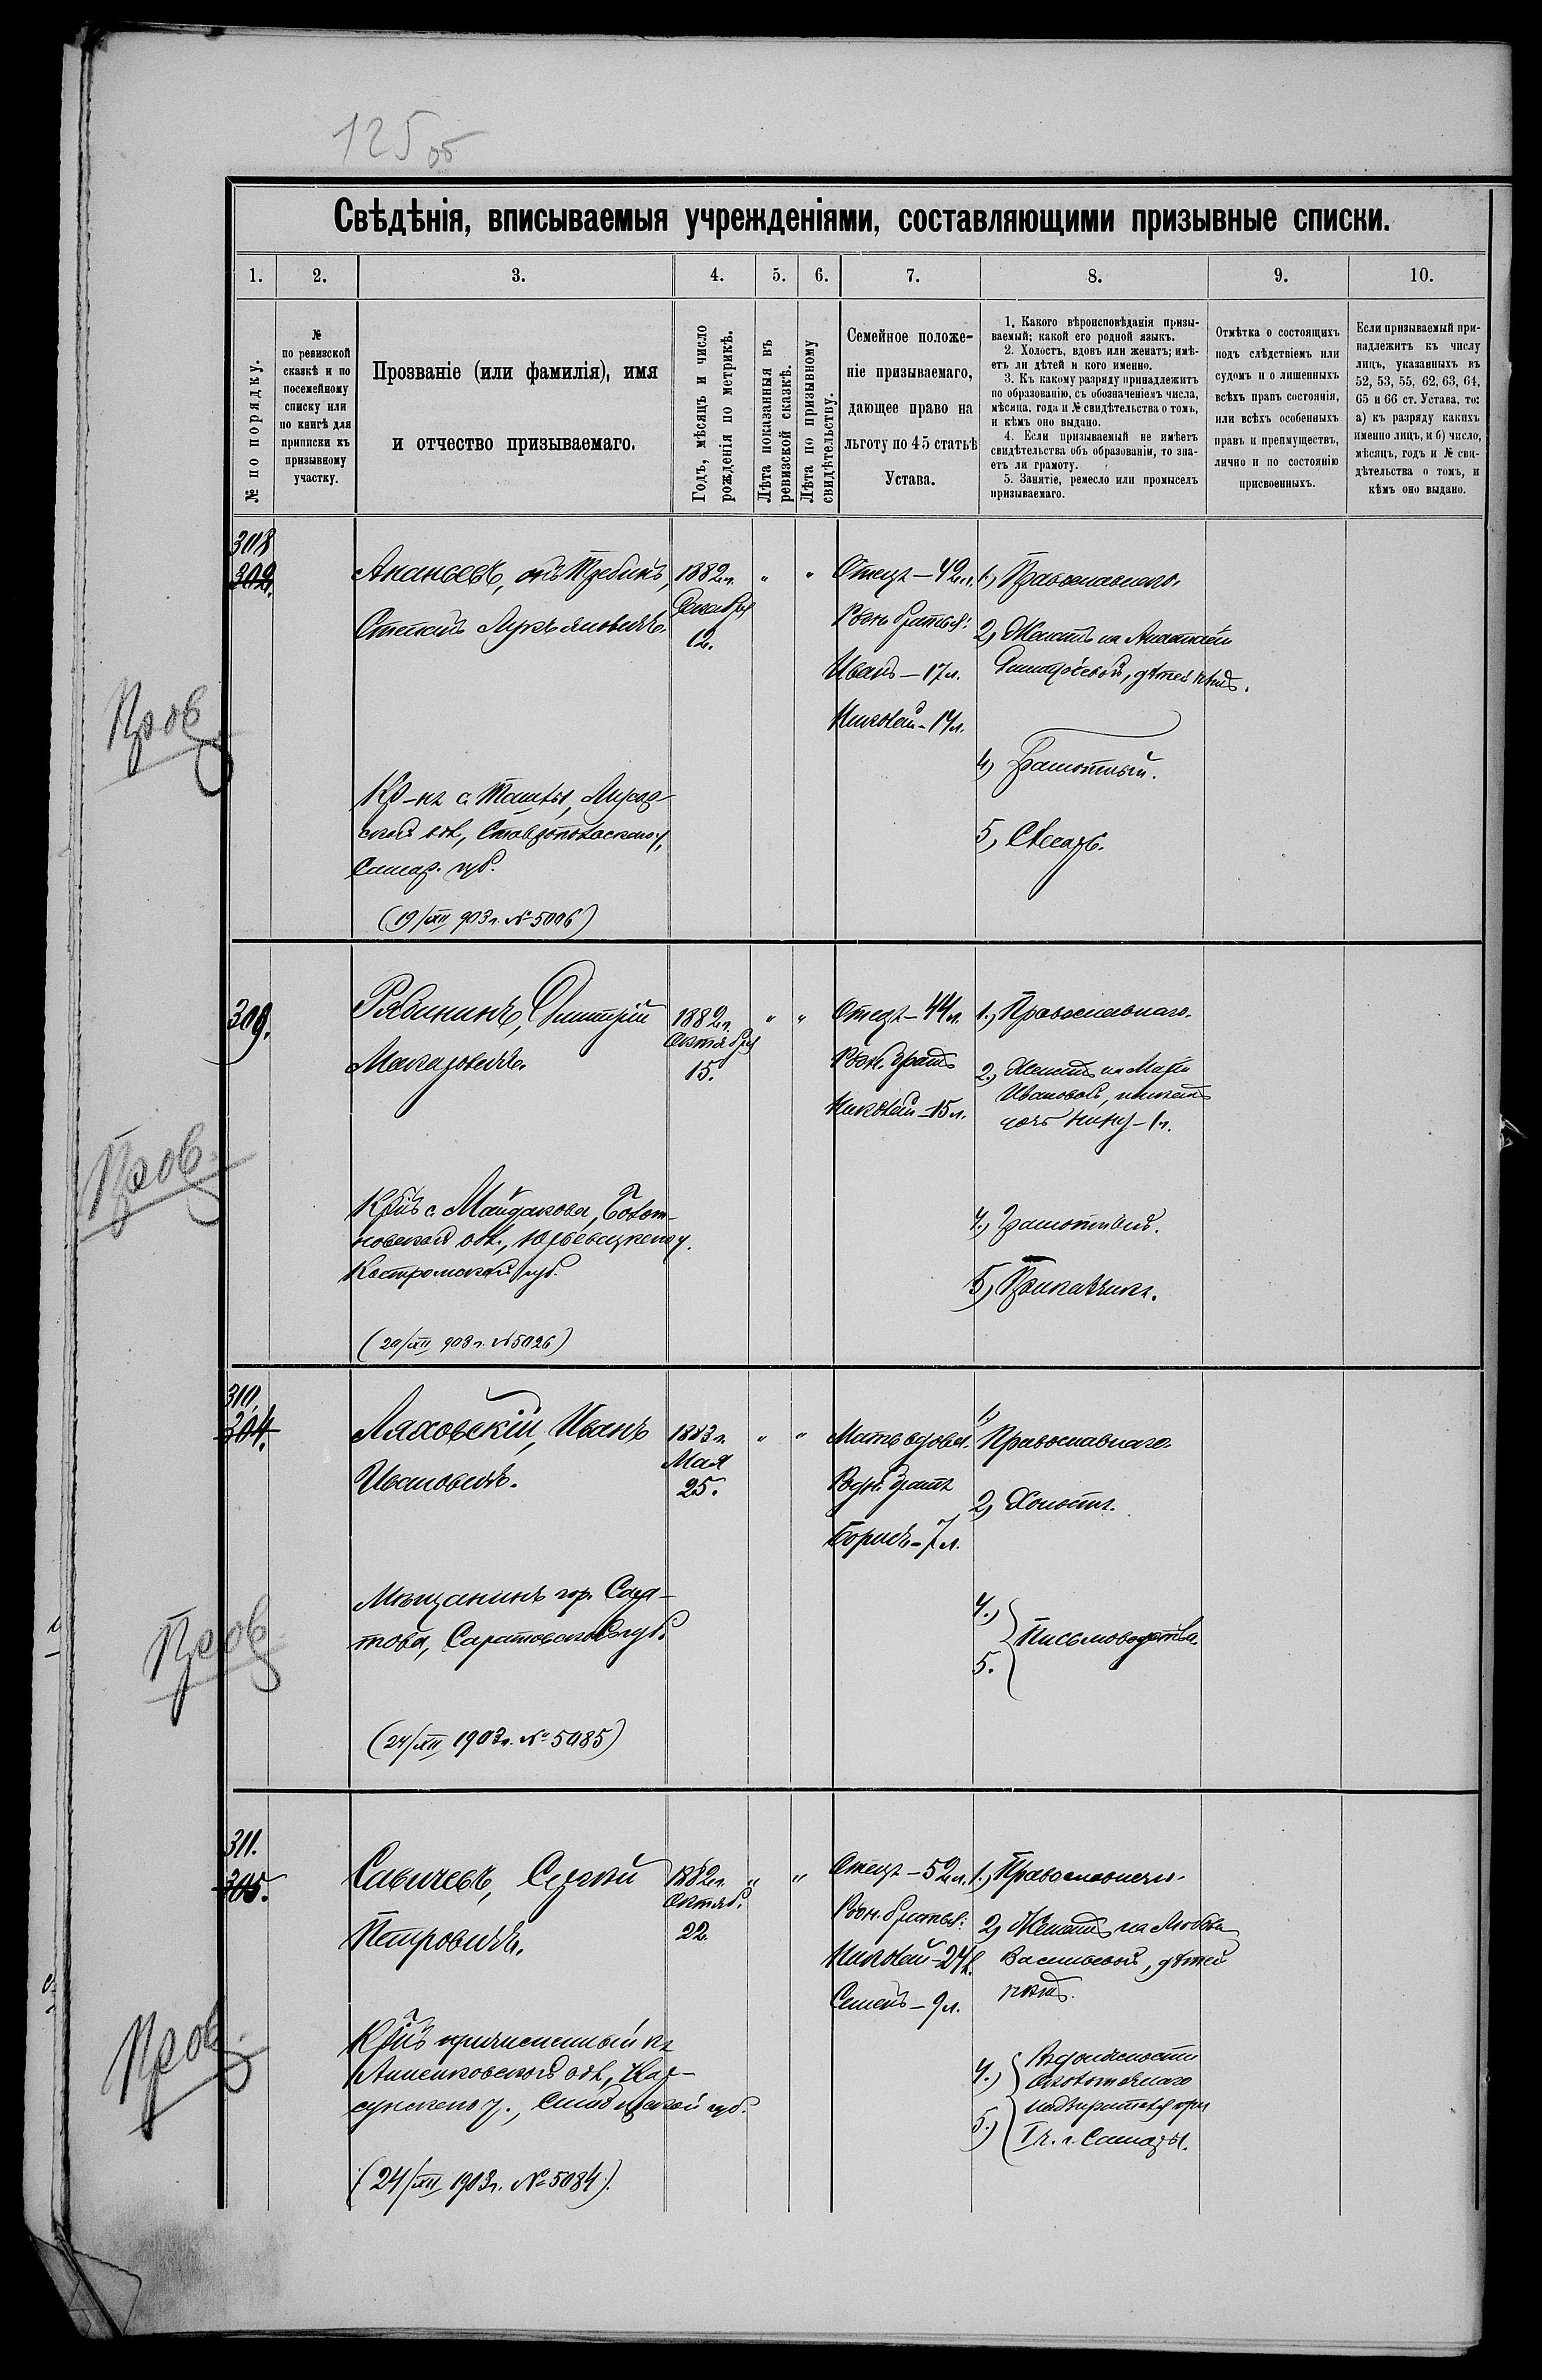 125 об
Свѣдѣнія, вписываемыя учрежденіями, составляющими призывные списки.
1. 2. 3. 4. 5. 6. 7. 8. 9. 10.
№ по порядку.
№
по ревизской
сказкѣ и по
посемейному
списку или
по книгѣ для
приписки къ
призывному
участку.
Прозваніе (или фамилія), имя
и отчество призываемаго.
Годъ, мѣсяцъ и число
рожденія по метрикѣ.
Лѣта показанныя въ
ревизской сказкѣ.
Лѣта по призывному
свидѣтельству.
Семейное положе-
ніе призываемаго,
дающее право на
льготу по 45 статьѣ
Устава.
1. Какого вѣроисповѣданія призы-
ваемый; какой его родной языкъ.
2. Холостъ, вдовъ или женатъ; имѣ-
етъ ли дѣтей и кого именно.
3. Къ какому разряду принадлежитъ
по образованію, съ обозначеніемъ числа,
мѣсяца, года и № свидѣтельства о томъ,
и кѣмъ оно выдано.
4. Если призываемый не имѣетъ
свидѣтельства объ образованіи, то зна-
етъ ли грамоту.
5. Занятіе, ремесло или промыселъ
призываемаго.
Отмѣтка о состоящихъ
подъ слѣдствіемъ или
судомъ и о лишенныхъ
всѣхъ правъ состоянія,
или всѣхъ особенныхъ
правъ и преимуществъ,
лично и по состоянію
присвоенныхъ.
Если призываемый при-
надлежитъ къ числу
лицъ, указанныхъ въ
52, 53, 55, 62, 63, 64,
65 и 66 ст. Устава, то:
а) къ разряду какихъ
именно лицъ, и б) число,
мѣсяцъ, годъ и № сви-
дѣтельства о томъ, и
кѣмъ оно выдано.
Пров
308
302.
Ананьевъ,
Степанъ Лукьяновичъ.
Кр-нъ с. Ташлы,
вол., Ставропольскаго у,
Самар. губ.
(19/XII 903 г. № 5006)
1882 г.
Декабря
12.
" "
Отецъ – 42 л.
Родн. братья:
Иванъ – 17 л.
Николай – 14 л.
1.) Православнаго.
2) Женатъ на
дѣтей нѣтъ.
4) Грамотный.
5) Слесарь.
Пров
309.
Рябининъ, Дмитрій
Макаровичъ.
Кр-нъ с. Майдакова,
вол., Юрьевецкаго у.
Костромской губ.
(20/XII 903 г. № 5026)
1882 г.
Октября
15.
" "
Отецъ – 44 л.
Родн. братъ
Николай – 15 л.
1.) Православнаго.
2.) Женатъ на Маріи
Ивановой, имѣетъ
дочь Нину – 1 г.
4.) Грамотный.
5) Приказчикъ.
Пров
310.
304.
Ляховскій, Иванъ
Ивановичъ.
Мѣщанинъ гор. Сара-
това, Саратовской губ.
(24/XII 1903 г. № 5085)
1883 г.
Мая
25.
" "
Мать вдова.
Родн. братъ
Борисъ – 7 л.
1)
Православнаго.
2) Холостъ.
4.)
5.
Письмоводства.
Пров
311.
305.
Савичевъ, Сергѣй
Петровичъ.
Кр-нъ причисленный къ
Анненковской вол., Кар-
сунскаго у., Симбирской губ.
(24/XII 1903 г. № 5084).
1882 г.
Октяб.
22.
" "
Отецъ – 52 л.
Родн. братья:
Николай – 24 л.
Семенъ – 9 л.
1.) Православнаго.
2) Женатъ на Любови
Васильевой, дѣтей
нѣтъ.
4.)
5.)
въ должности
околоточнаго
надзирателя при
I ч. г. Самары.